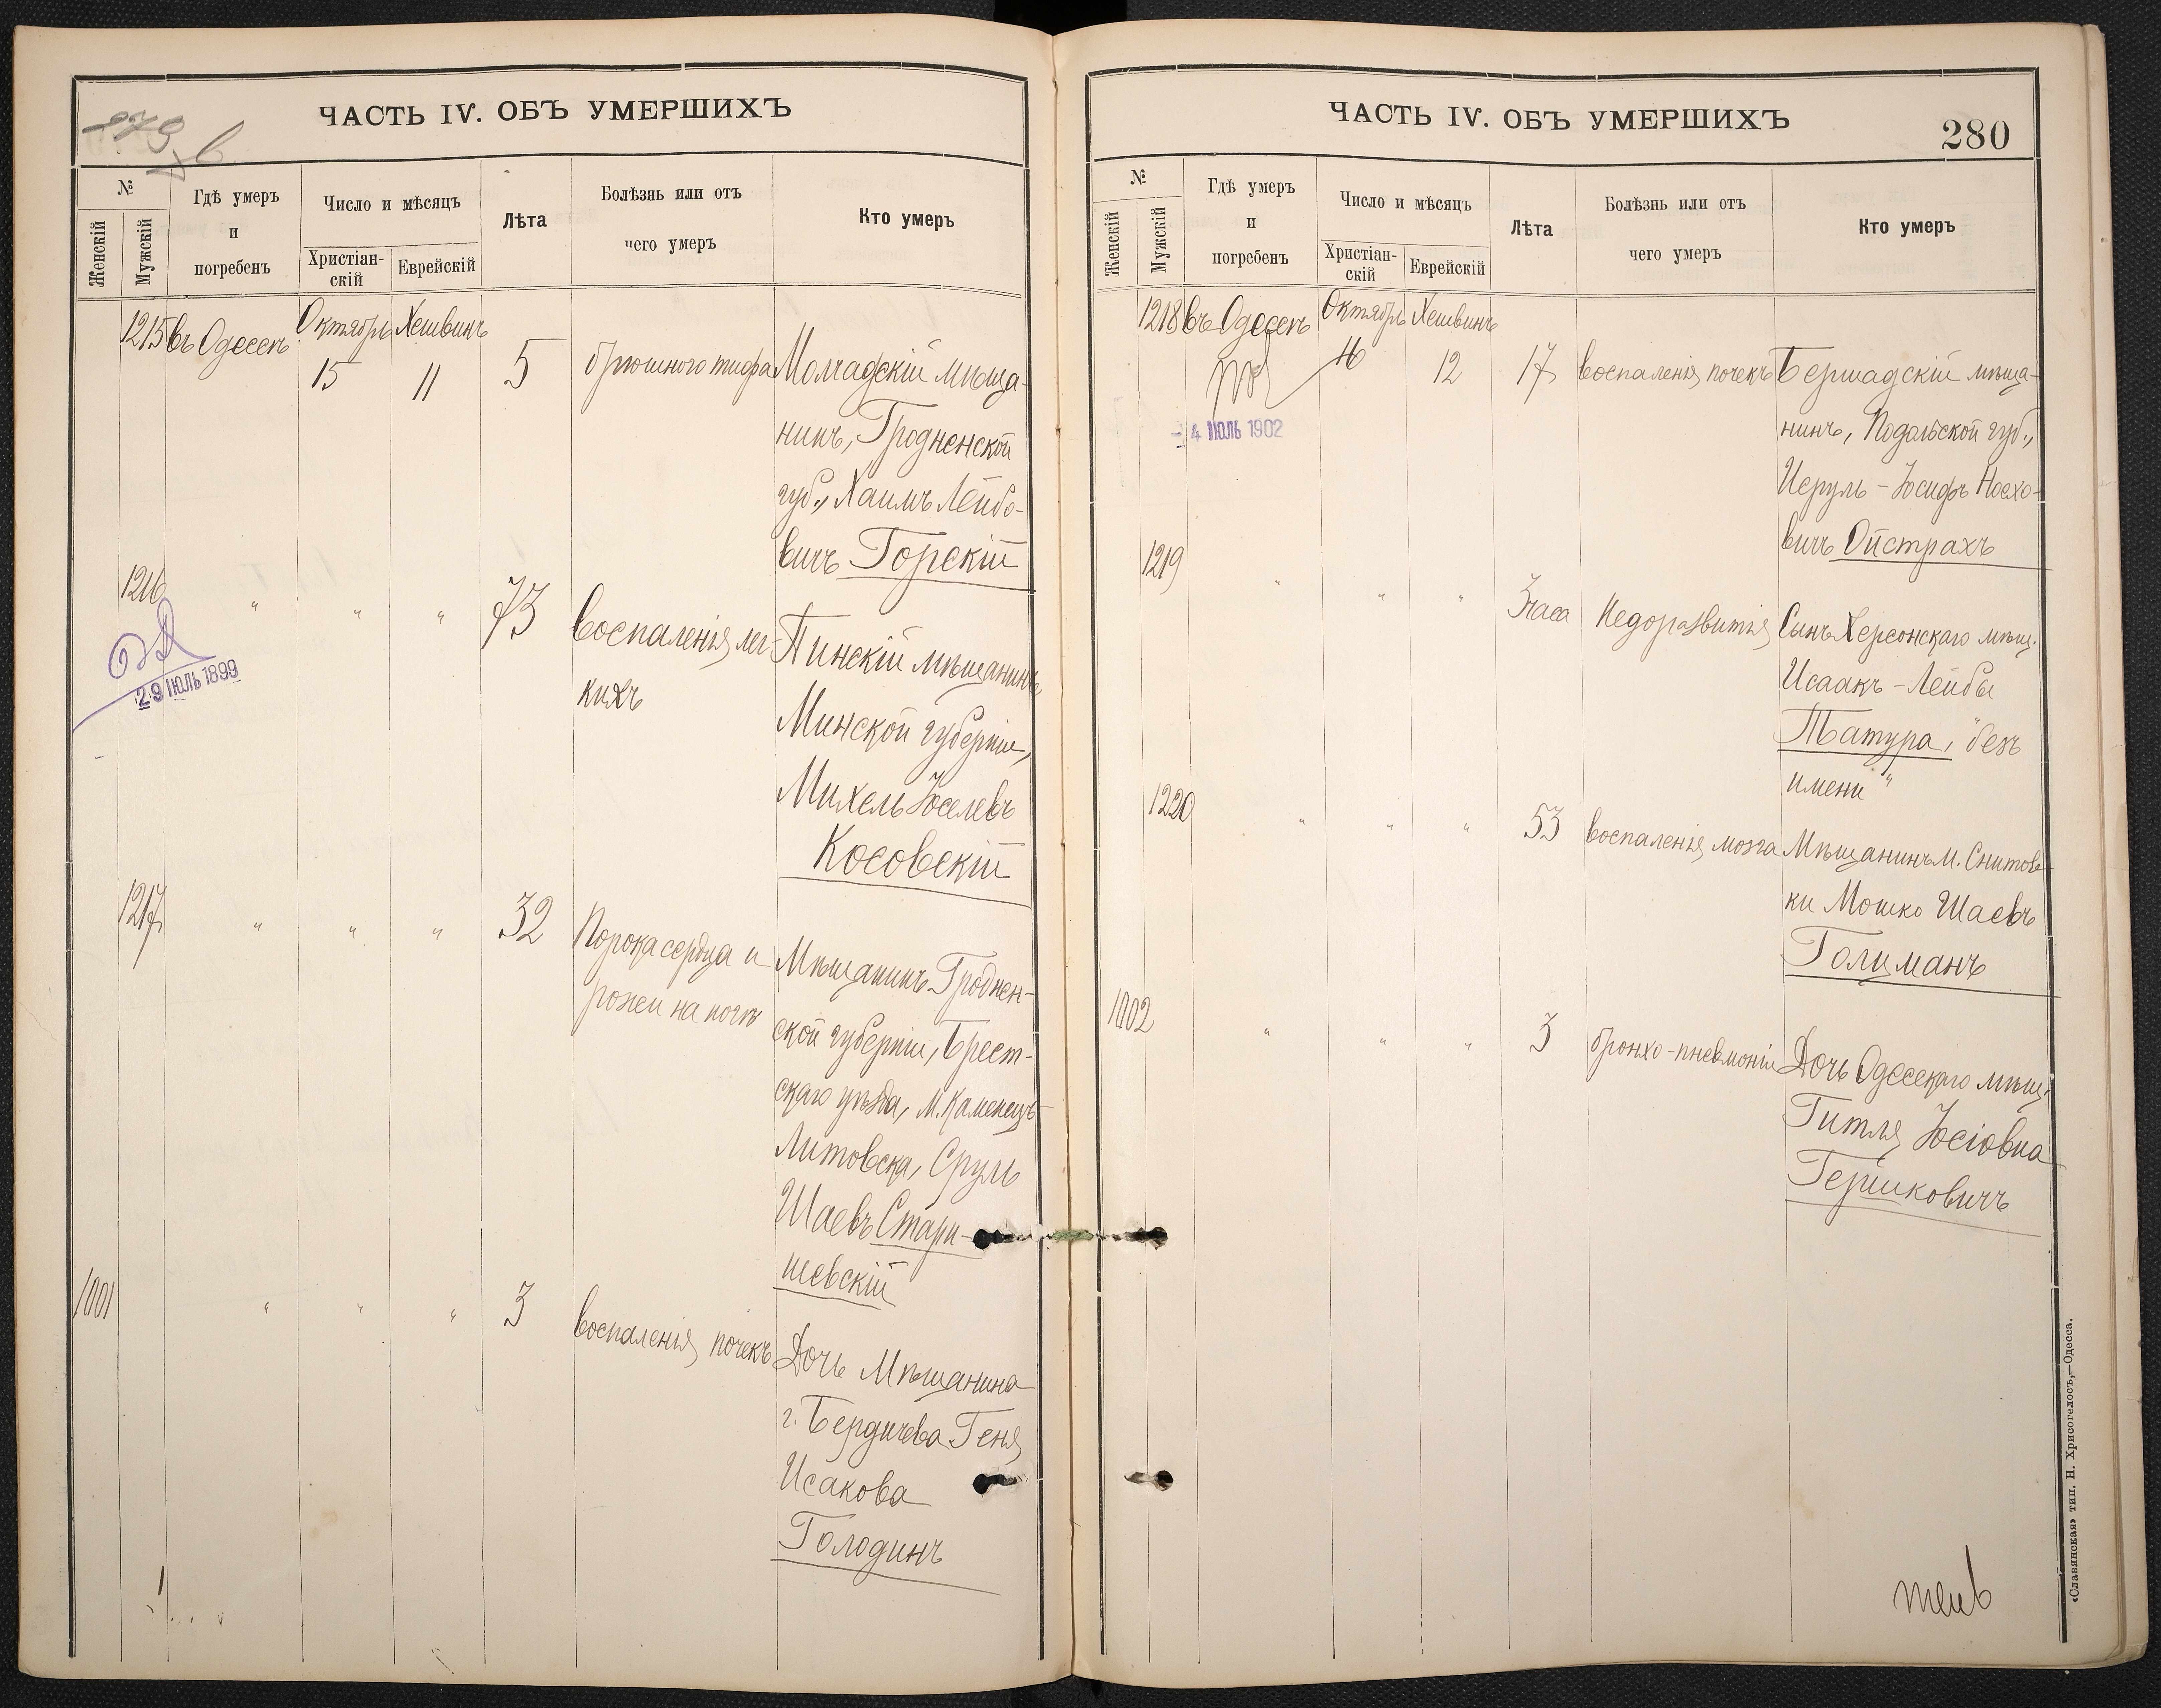 279 b
ЧАСТЬ IV. ОБЪ УМЕРШИХЪ
№
Женскій
Мужскій
Гдѣ умеръ
и
погребенъ
Число и мѣсяцъ
Христіан-
скій
Еврейскій
Лѣта
Болѣзнь или отъ
чего умеръ
Кто умеръ
1215 въ Одессѣ Октябрь Хешвинъ
15 11 5 брюшного тифа Молчадскій мѣща-
нинъ, Гродненской
губ., Хаимъ Лейбо-
вичъ Горскій
1216 " " " 73 воспаленія лег-
кихъ
29 ІЮЛЬ 1899
Пинскій мѣщанинъ
Минской губерніи,
Михель Іоселевъ
Косовскій
1217 " " " 32 Порока сердца и
рожи на ногѣ
Мѣщанинъ Гроднен-
ской губерніи, Брест-
скаго уѣзда, м. Каменецъ-
Литовска, Сруль
Шаевъ Стари-
шевскій
1001 " " " 3 воспаленія почекъ
Дочь Мѣщанина
г. Бердичева Геня
Исакова
Голодинъ
ЧАСТЬ IV. ОБЪ УМЕРШИХЪ
280
№
Женскій
Мужскій
Гдѣ умеръ
и
погребенъ
Число и мѣсяцъ
Христіан-
скій
Еврейскій
Лѣта
Болѣзнь или отъ
чего умеръ
Кто умеръ
1218 въ Одессѣ Октябрь Хешвинъ
16 12 17 воспаленія почекъ Бершадскій мѣща-
- 4 ІЮЛЬ 1902
нинъ, Подольской губ.,
Исруль-Іосифъ Носхо-
вичъ Ойстрахъ
1219 " " " 3 часа Недоразвитія Сынъ Херсонскаго мѣщ.
Исаакъ-Лейбы
Татура, "безъ
имени"
1220 " " " 53 воспаленія мозга Мѣщанинъ м. Снитов-
ки Мошко Шаевъ
Голиманъ
1002 " " " 3 бронхо-пневмоніи Дочь Одесскаго мѣщ.
Гитля Іосіовна
Гершковичъ
«Славянская» тип. Н. Хрисогелосъ,—Одесса.